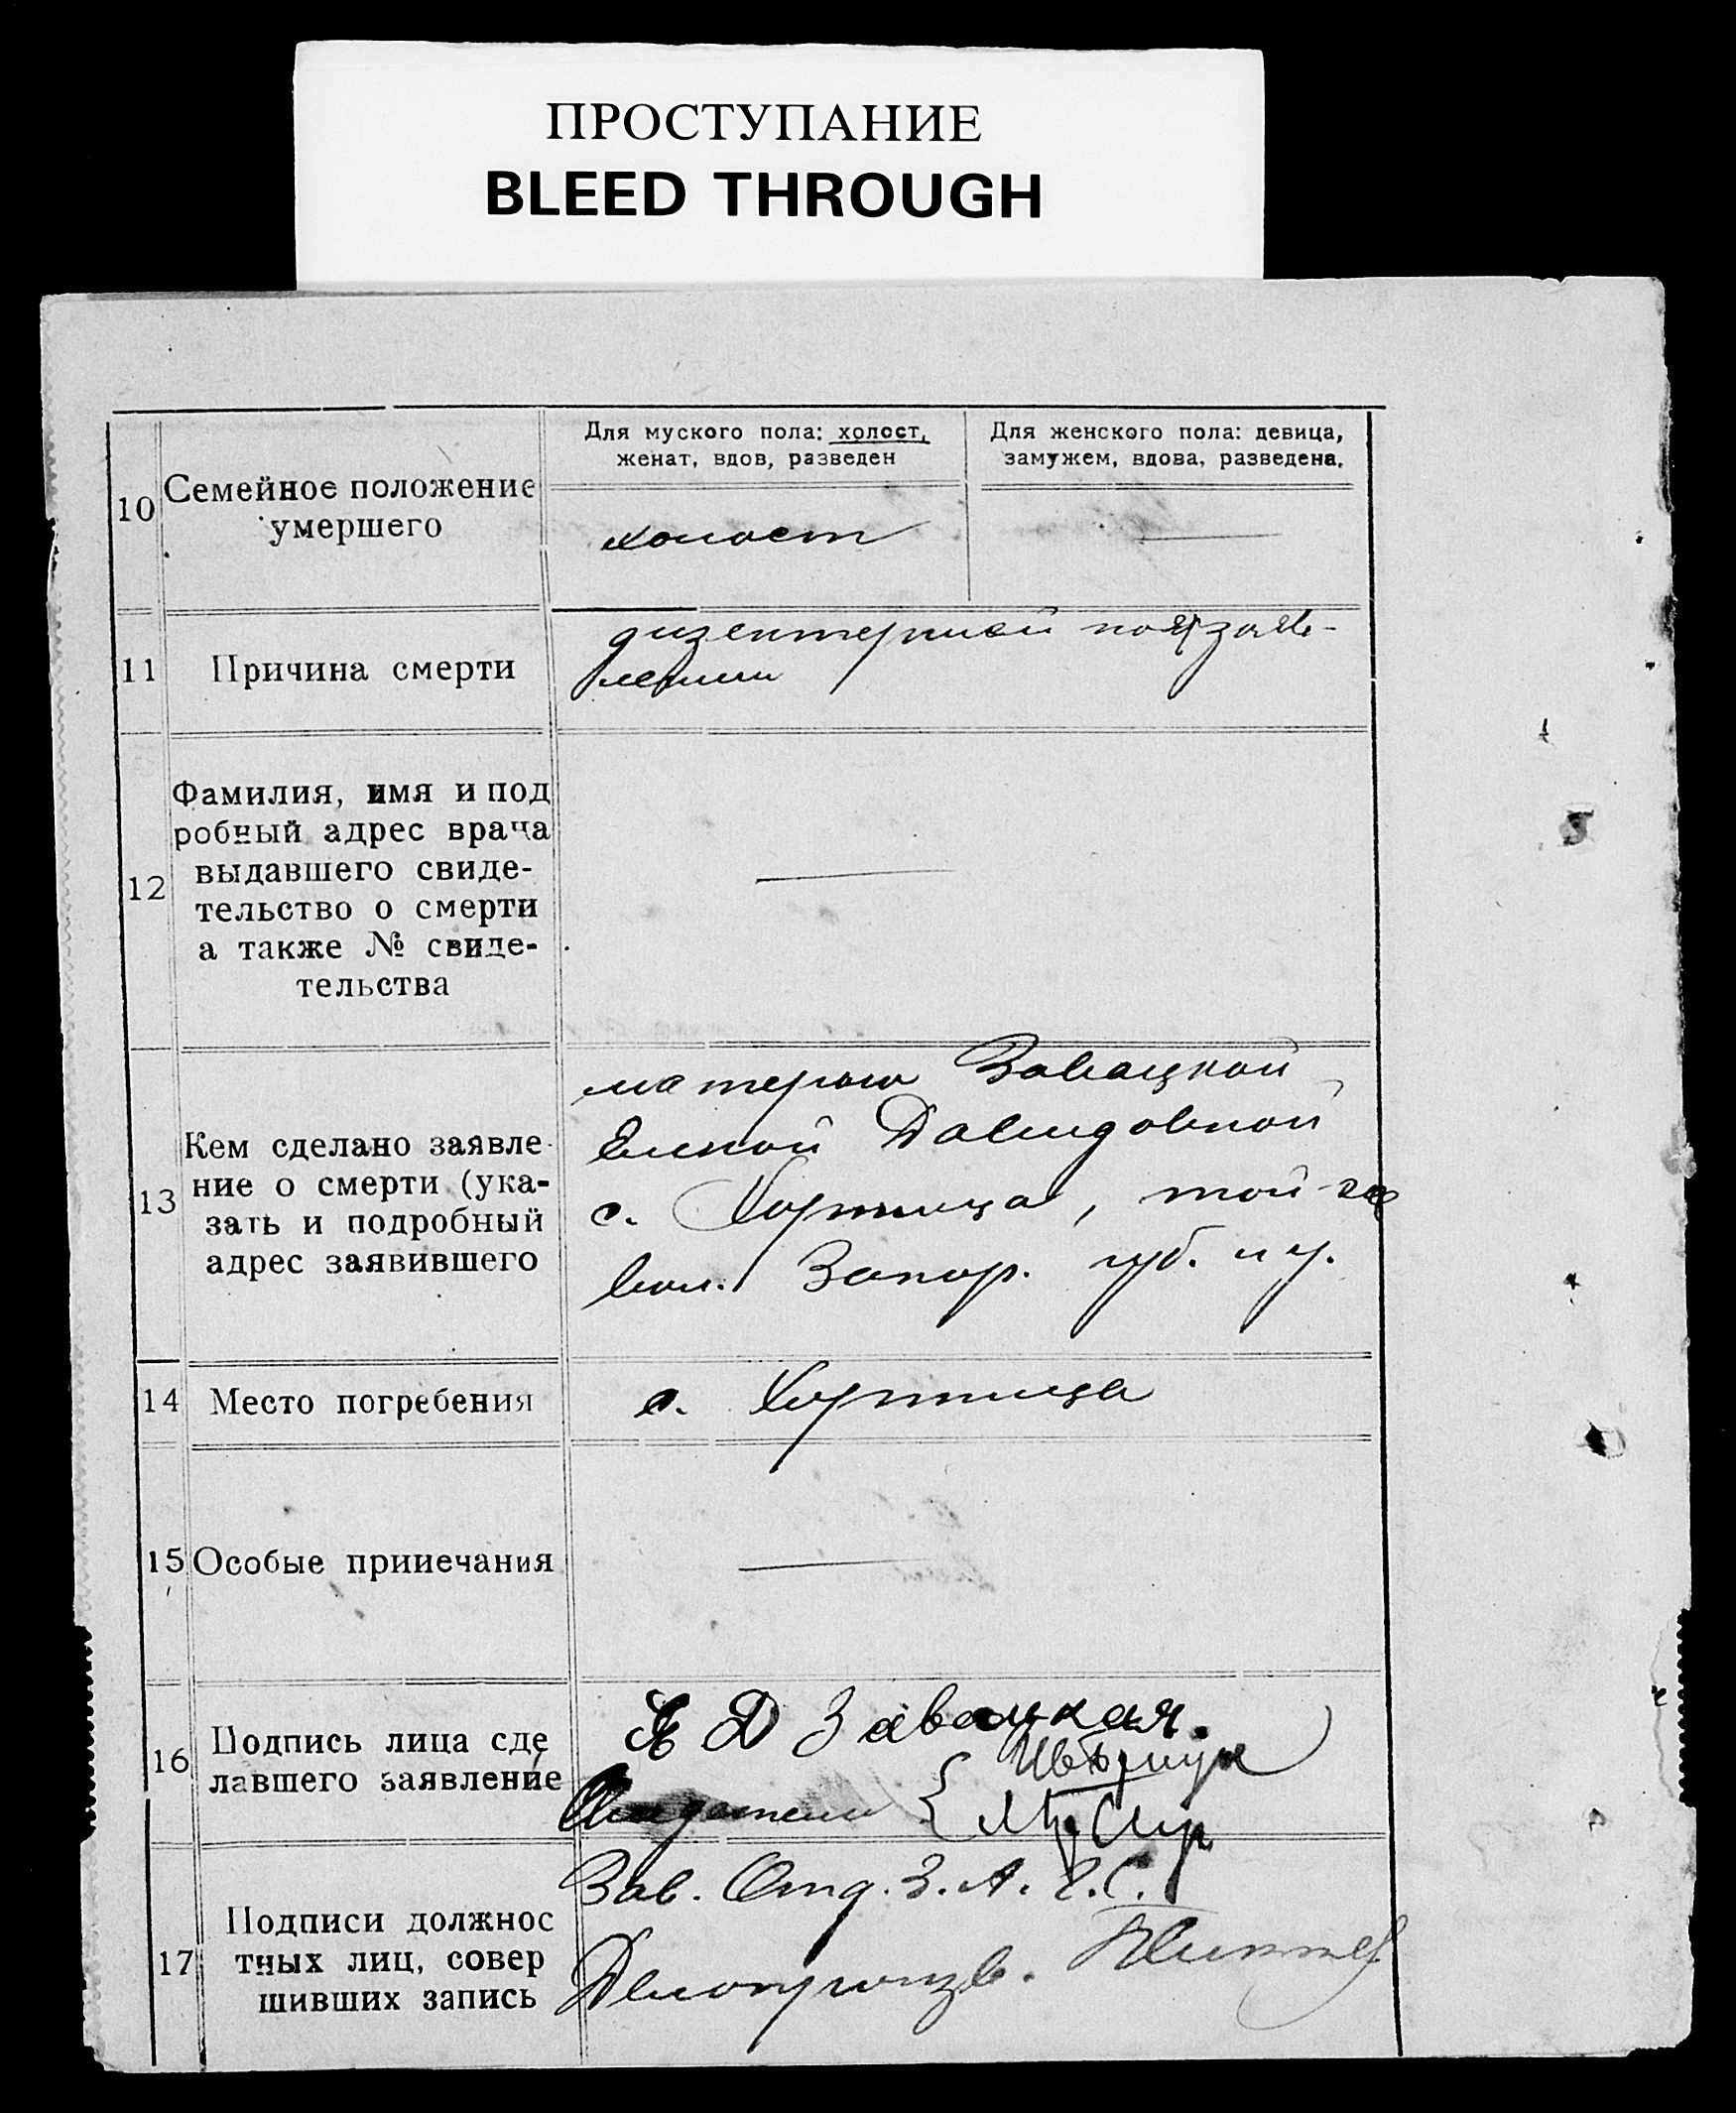 ПРОСТУПАНИЕ
BLEED THROUGH
Для муского пола: холост,
женат, вдов, разведен
Для женского пола: девица,
замужем, вдова, разведена.
10
Семейное положение
умершего
холост
11
Причина смерти
дизентерией по заяв-
лению
12
Фамилия, имя и под
робный адрес врача
выдавшего свиде-
тельство о смерти
а также № свиде-
тельства
13
Кем сделано заявле-
ние о смерти (ука-
зать и подробный
адрес заявившего
матерью Завацкой
Еленой Давидовной
с. Хортица, той-же
вол. Запор. губ. и у.
14
Место погребения
с. Хортица
15
Особые прииечания
16
Подпись лица сде
лавшего заявление
Д Завацкая.
Свидетели {
17
Подписи должнос
тных лиц, совер
шивших запись
Зав. Отд. З. А. Г. С.
Делопроизв.